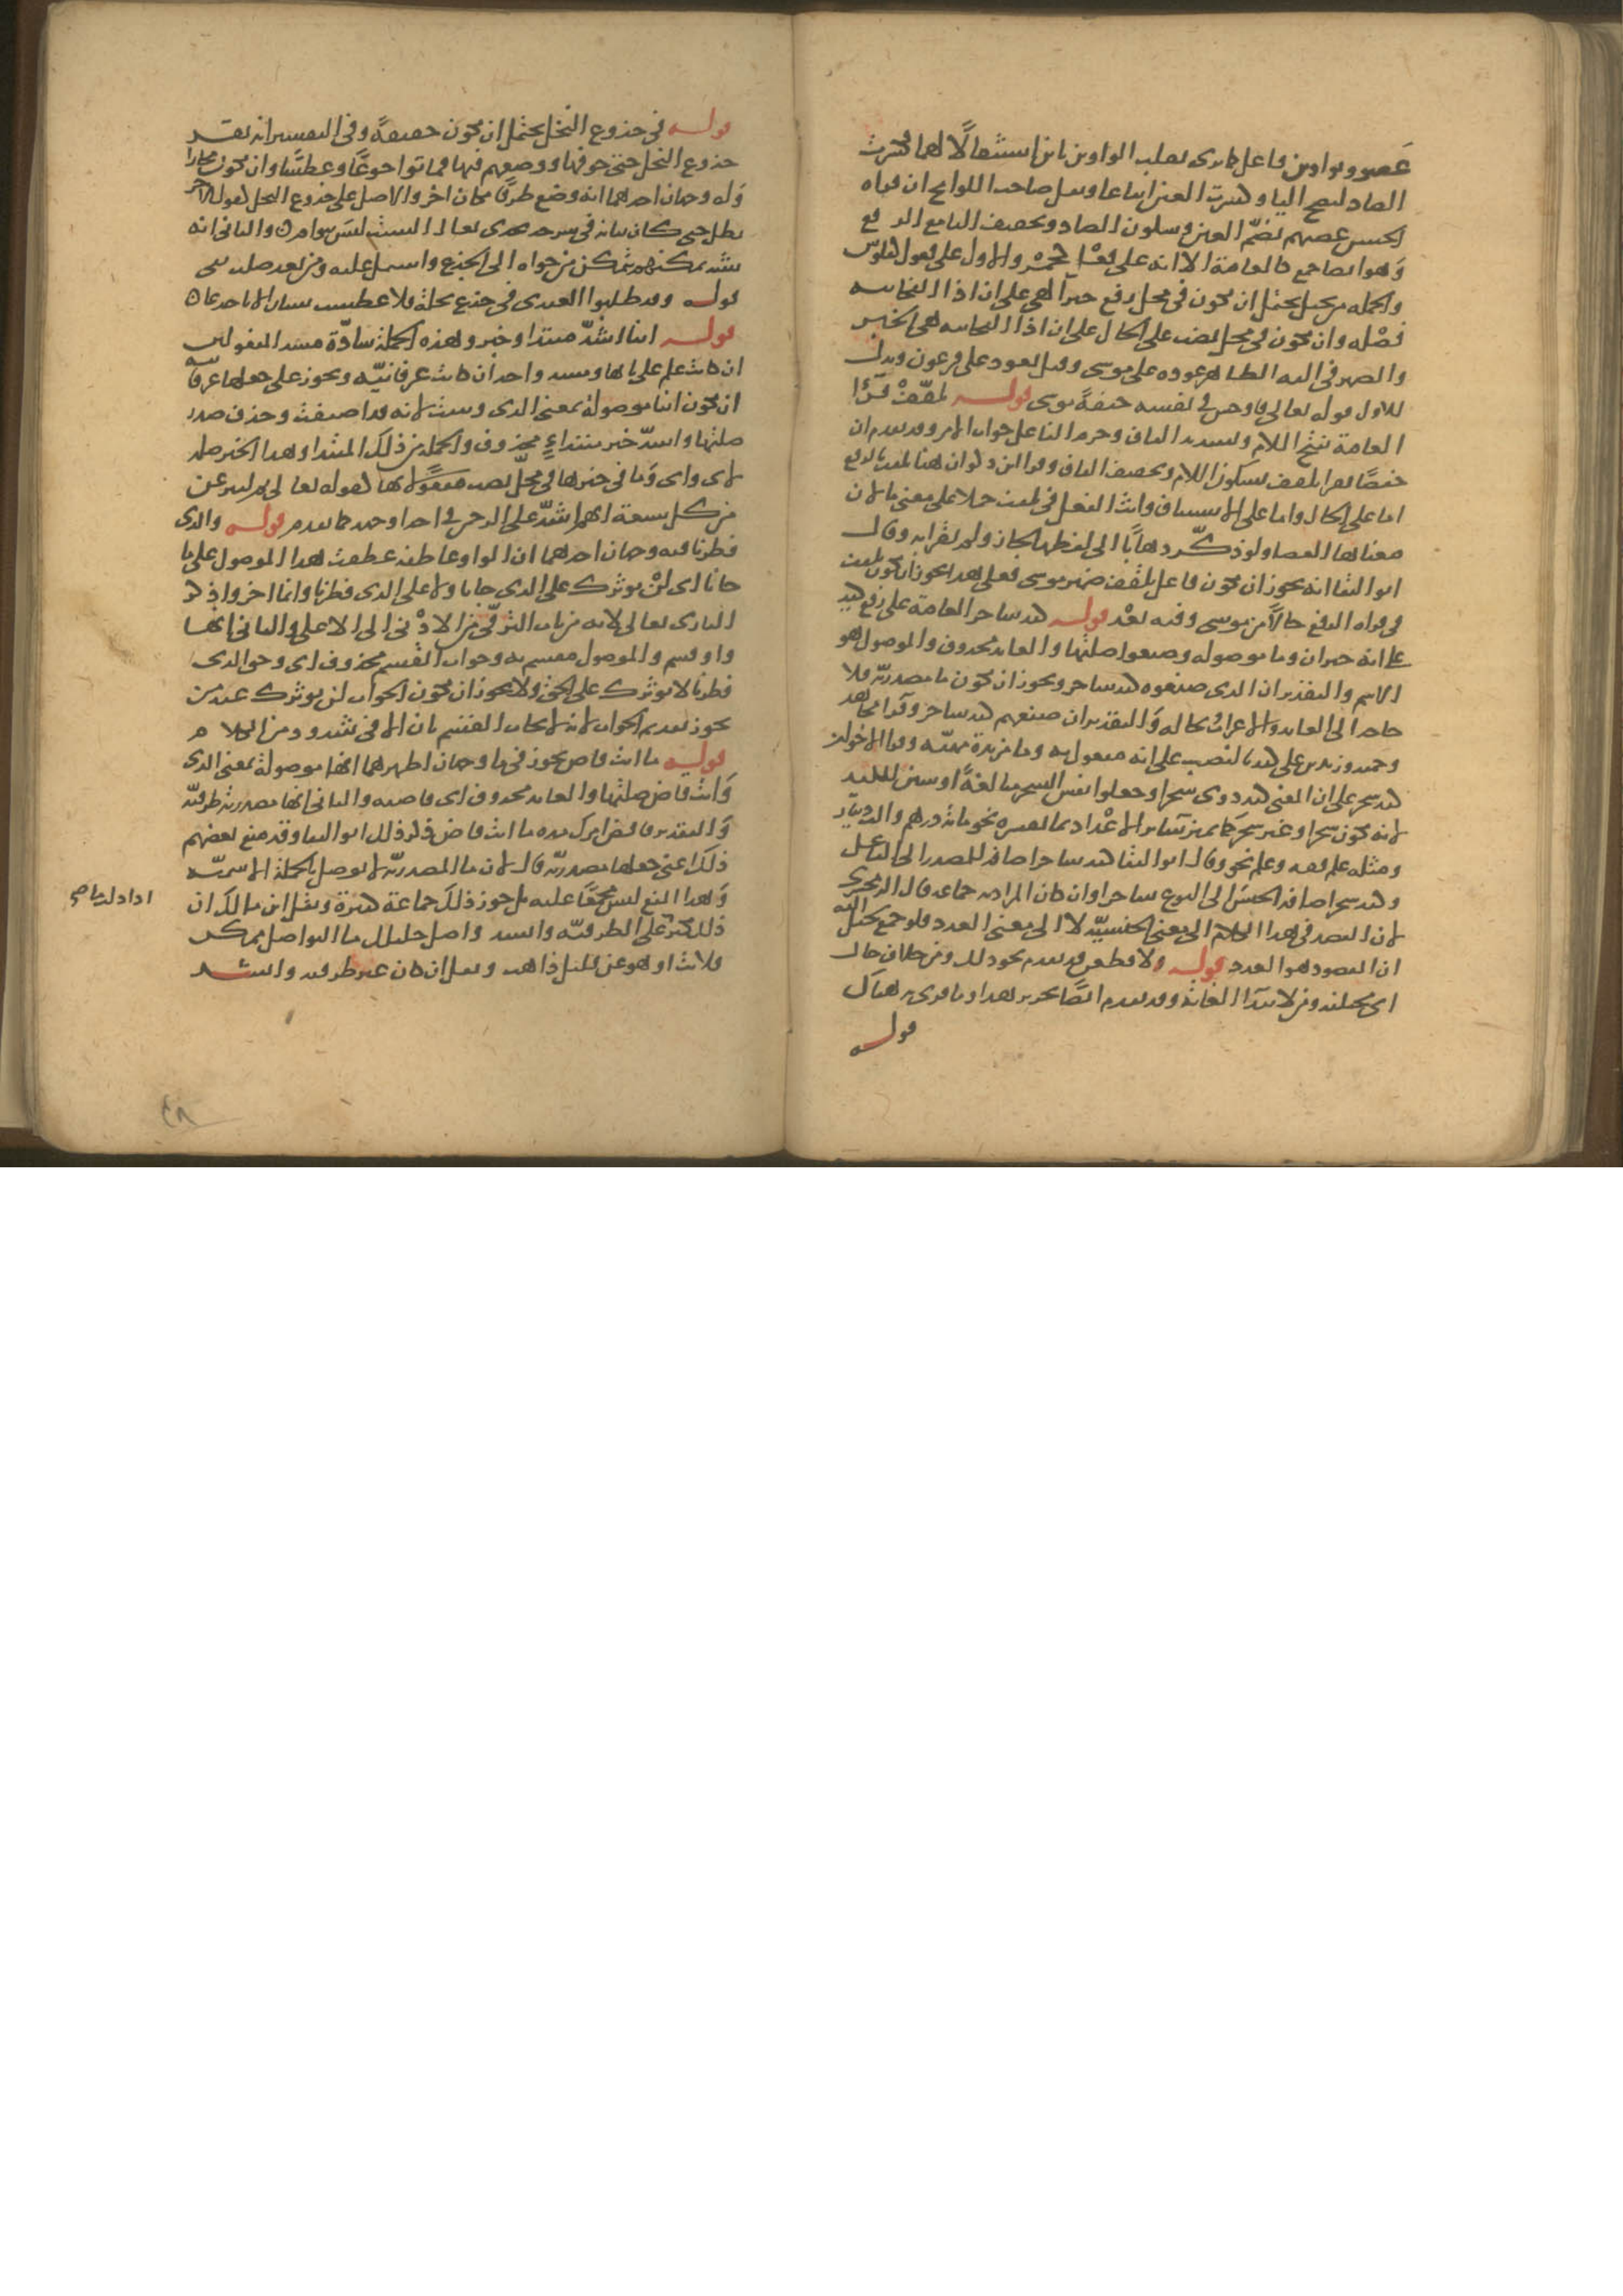 عصوو بواوين فاعل كما ترى بقلب الواوين ياين استثقالا لهما فكسرت
الصاد لتصح اليا وكسرت العين اتباعا ونقل صاحب اللوامح ان قراه
الحسن عصيهم بضم العين وسكون الصاد وتخفيف اليا مع الرفع
وهو ايضا جمع كالعامة الا انه على فعل والاول على فعول كفلوس
والجمله من يخيل يحتمل ان تكون في محل رفع خبرا لهي على ان اذا الفجاييه
فضله وان تكون في محل نصب على الحال على ان اذا الفجاييه هي الخبر
والضمير في اليه الظاهر عوده على موسى وقيل يعود على فرعون ويدل
للاول قوله تعالى فاوجس في نفسه خيفة موسى قوله تلقف قرا
العامة بفتح اللام وتشديد القاف وجزم الفا على جواب الامر وقد تقدم ان
حفصا يقرا تلقف بسكون اللام وتخفيف القاف وقرا ابن ذكوان هنا تلقف بالرفع
اما على الحال واما على الاستيناف وانث الفعل في تلقف حملا على معنى ما لان
معناها العصا ولو ذكر ذهابا الى لفظها لجاز ولم يقرا به وقال
ابو البقا انه يجوز ان تكون فاعل تلقف ضمير موسى فعلى هذا يجوز ان تكون تلقف
في قراه الرفع حالا من موسى وفيه بعد قوله كيد ساحر العامة على رفع كيد
على انه خبر ان وما موصوله وصنعوا صلتها والعايد محذوف والموصول هو
الاسم والتقدير ان الذي صنعوه كيد ساحر ويجوز ان تكون ما مصدرية فلا
حاجه الى العايد والاعراب بحاله والتقدير ان صنعهم كيد ساحر وقرا مجاهد
وحميد وزيد بن علي كيد بالنصب على انه مفعول به وما مزيدة مهيئة وقرا الاخوان
كيد سحر على ان المعنى كيد ذوي سحر او جعلوا نفس السحر مبالغة او تبيين للكيد
لانه تكون سحرا وغير سحر كما تميز سائر الاعداد بما يفسره نحو مائة درهم والف دينار
ومثله علم فقه وعلم نحو وقال ابو البقا كيد ساحر اضافه المصدر الى الفاعل
وكيد سحر اضافه الجنس الى النوع ساحر وان كان المراد به جماعه قال الزمخشري
لان القصد في هذا الكلام الى معنى الجنسية لا الى معنى العدد فلو جمع لخيل اليه
ان المقصود هو العدد قوله ولا قطعن قد تقدم نحو ذلك ومن خلاف حال
اى مختلفه ومن لابتدا الغاية وقد تقدم ايضا تحرير هذا وما قري به هناك
قوله
قوله في جذوع النخل يحتمل ان تكون حقيقة وفي التفسير انه نقر
جذوع النخل حتى جوفها ووضعهم فيها فماتوا جوعا وعطشا وان تكون مجازا
وله وجهان احدهما انه وضع ظرفا مكان اخر والاصل على جذوع النخل كقول الاخر
بطل كان ثيابه في سرحه يحذى نعال السبت ليس بتوام والثاني انه
شبه تمكنهم بتمكن من حواه الجذع واشتمل عليه ومن تعدي صلب بفي
قوله وقد صلبوا العبدي في جذع نخلة فلا عطست شيبان الا باجدعا
قوله اينا اشد مبتدا وخبر وهذه الجملة سادة مسد المفعولين
ان كانت علم على بابها ومسد واحد ان كانت عرفانية ويجوز على جعلها عرفانية
ان تكون اينا موصولة بمعنى الذي وبنيت لانه قد اضيفت وحذف صدر
صلتها واشد خبر مبتداء محذوف والجمله من ذلك المبتدا وهذا الخبر صله
لاى واى وما في خبرها في محل نصب مفعولا بها كقوله تعالى ثم لننزعن
من كل شيعة ايهم اشد على الرحمن في احد اوجهه كما تقدم قوله والذي
فطرنا فيه وجهان احدهما ان الواو عاطفه عطفت هذا الموصول على ما
جانا اى لن نوثرك على الذي جانا ولا على الذي فطرنا وانما اخروا ذكر
البارى تعالى لانه من باب الترقى من الادنى الى الاعلى والثاني انها
واو قسم والموصول مقسم به وجواب القسم محذوف اى وحق الذي
فطرنا لا نوثرك على الحق ولا يجوز ان تكون الجواب لن نوثرك عند من
يجوز تقديم الجواب لانه لا يجاب القسم بلن الا في شذوذ من الكلام
قوله ما انت قاض يجوز في ما وجهان اظهرهما انها موصولة بمعنى الذي
وانت قاض صلتها والعايد محذوف اى قاضيه والثاني انها مصدرية ظرفية
والتقدير فاقض امرك مده ما انت قاض ذكر ذلك ابو البقا وقد منع بعضهم
ذلك اعنى جعلها مصدرية قال لان ما المصدرية لا توصل بالجملة الاسمية
وهذا المنع ليس مجمعا عليه بل جوز ذلك جماعة كثيرة ونقل ابن مالك ان
ذلك كثير على الظرفية وانشد واصل خليلك ما التواصل ممكن
فلانت او هو عن قليل ذاهب وقيل ان كان غير ظرفيه وانشد
٤٨